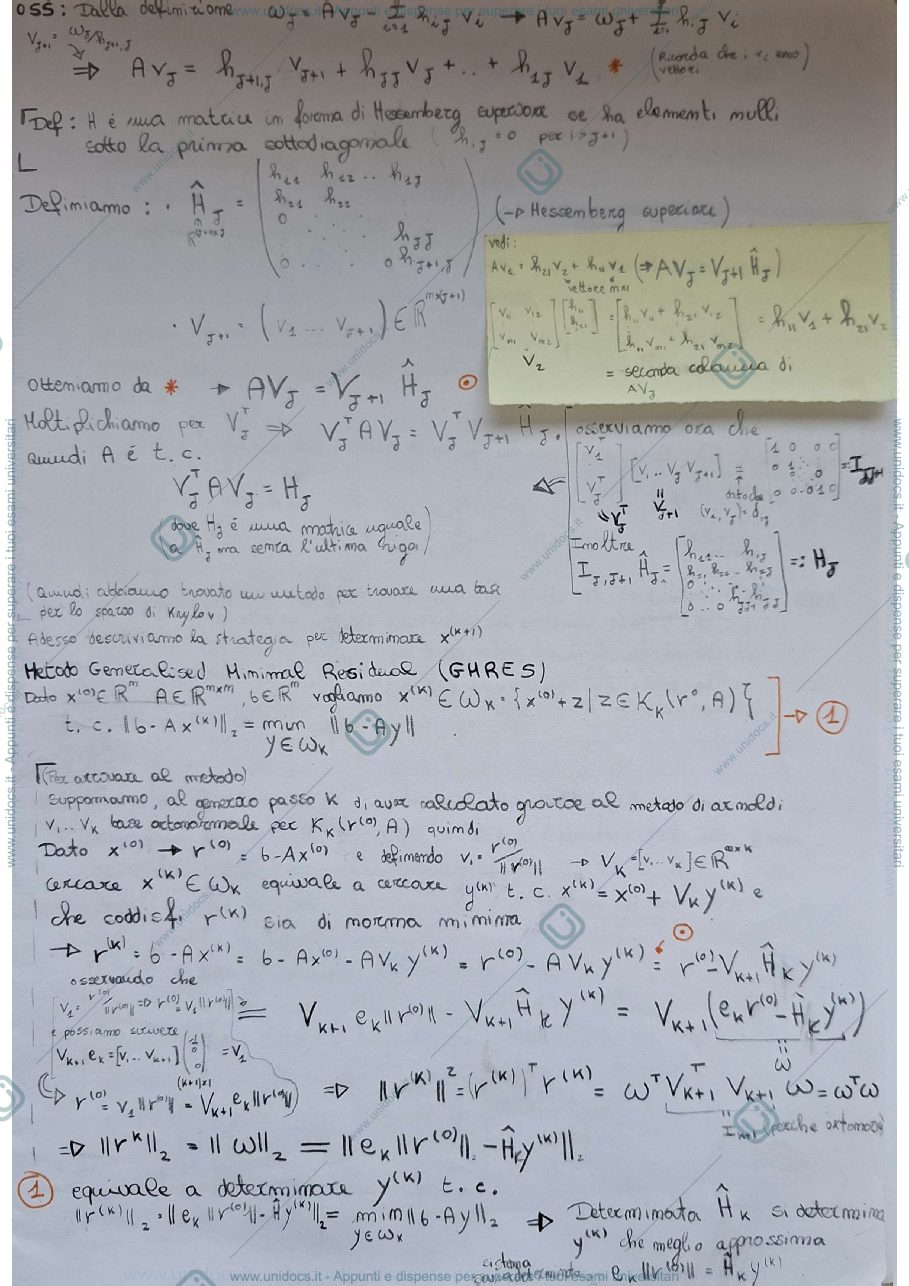 OSS: Dalla definizione ω_J = A v_J - Σ_{i=1}^J h_{ij} v_i → A v_J = ω_J + Σ_{i=1}^J h_{ij} v_i
v_{J+1} = ω_J/h_{J+1,J}
⇒ A v_J = h_{J+1,J} v_{J+1} + h_{JJ} v_J + .. + h_{1J} v_1 * (Ricorda che i v_i sono vettori)
Def: H é una matrice in forma di Hessemberg superiore se ha elementi nulli
sotto la prima sottodiagonale (h_{ij} = 0 per i > J+1)
Definiamo: · Ĥ_J = ( h_{11} h_{12} .. h_{1J}
h_{21} h_{22}
0 . . .
h_{JJ}
0 . . . 0 h_{J+1,J} ) (→ Hessemberg superiore)
vedi:
A v_1 = h_{21} v_2 + h_{11} v_1 (⇒ A V_J = V_{J+1} Ĥ_J)
vettore m×1
[v_{11} v_{12} v_{m1} v_{m2}] [h_{11} h_{21}] = [h_{11} v_{11} + h_{21} v_{12} h_{11} v_{m1} + h_{21} v_{m2}] = h_{11} v_1 + h_{21} v_2
V_2
= seconda colonna di
A V_J
· V_{J+1} = (v_1 ... v_{J+1}) ∈ R^{m×(J+1)}
Otteniamo da * → A V_J = V_{J+1} Ĥ_J ⊙
Moltiplichiamo per V_J^T ⇒ V_J^T A V_J = V_J^T V_{J+1} Ĥ_J.
quindi A é t.c.
V_J^T A V_J = H_J
(dove H_J é una matrice uguale
a Ĥ_J ma senza l'ultima riga)
osserviamo ora che
[v_1^T : v_J^T] [v_1 .. v_J v_{J+1}] = [1 0 0 0 0 1 0 0 0 - 0 1 0] = I_{J,J+1}
V_J^T V_{J+1} (v_i, v_J) = δ_{ij}
Inoltre
I_{J,J+1} Ĥ_J = [h_{11} ... h_{1J} h_{21} h_{22} ... h_{2J} 0 ... 0 .. 0 h_{JJ-1} h_{JJ}] =: H_J
(Quindi abbiamo trovato un metodo per trovare una base
per lo spazio di Krylov)
Adesso descriviamo la strategia per determinare x^{(k+1)}
Metodo Generalised Minimal Residual (GMRES)
Dato x^{(0)} ∈ R^m A ∈ R^{m×m}, b ∈ R^m vogliamo x^{(k)} ∈ W_k = {x^{(0)} + z | z ∈ K_k(r^0, A)} → 1
t.c. ||b - A x^{(k)}||_2 = min_{y ∈ W_k} ||b - Ay||
(Per arrivare al metodo)
Supponiamo, al generico passo k di aver calcolato grazie al metodo di arnoldi
v_1 .. v_k base ortonormale per K_k(r^{(0)}, A) quindi
Dato x^{(0)} → r^{(0)} = b - A x^{(0)} e definendo v_1 = r^{(0)}/||r^{(0)}|| → V_k = [v_1 ... v_k] ∈ R^{m×k}
cercare x^{(k)} ∈ W_k equivale a cercare y^{(k)} t.c. x^{(k)} = x^{(0)} + V_k y^{(k)} e
che soddisfi r^{(k)} sia di norma minima
→ r^{(k)} = b - A x^{(k)} = b - A x^{(0)} - A V_k y^{(k)} = r^{(0)} - A V_k y^{(k)} =⊙ r^{(0)} - V_{k+1} Ĥ_k y^{(k)}
osservando che
v_1 = r^{(0)}/||r^{(0)}|| ⇒ r^{(0)} = v_1 ||r^{(0)}||
= V_{k+1} e_k ||r^{(0)}|| - V_{k+1} Ĥ_k y^{(k)} = V_{k+1} (e_k r^{(0)} - Ĥ_k y^{(k)})
e possiamo scrivere
V_{k+1} e_k = [v_1 ... v_{k+1}] (1 0 0) = v_1
(k+1)×1
ω
r^{(0)} = v_1 ||r^{(0)}|| = V_{k+1} e_k ||r^{(0)}|| ⇒ ||r^{(k)}||^2 = (r^{(k)})^T r^{(k)} = ω^T V_{k+1}^T V_{k+1} ω = ω^T ω
perche ortonorm
⇒ ||r^k||_2 = ||ω||_2 = ||e_k ||r^{(0)}|| - Ĥ_k y^{(k)}||_2
1 equivale a determinare y^{(k)} t.c.
||r^{(k)}||_2 = ||e_k ||r^{(0)}|| - Ĥ y^{(k)}||_2 = min_{y ∈ W_k} ||b - Ay||_2 ⇒ Determinata Ĥ_k si determina
y^{(k)} che meglio approssima
sistema
e_k ||r^{(0)}|| = Ĥ_k y^{(k)}
www.unidocs.it - Appunti e dispense per superare i tuoi esami universitari